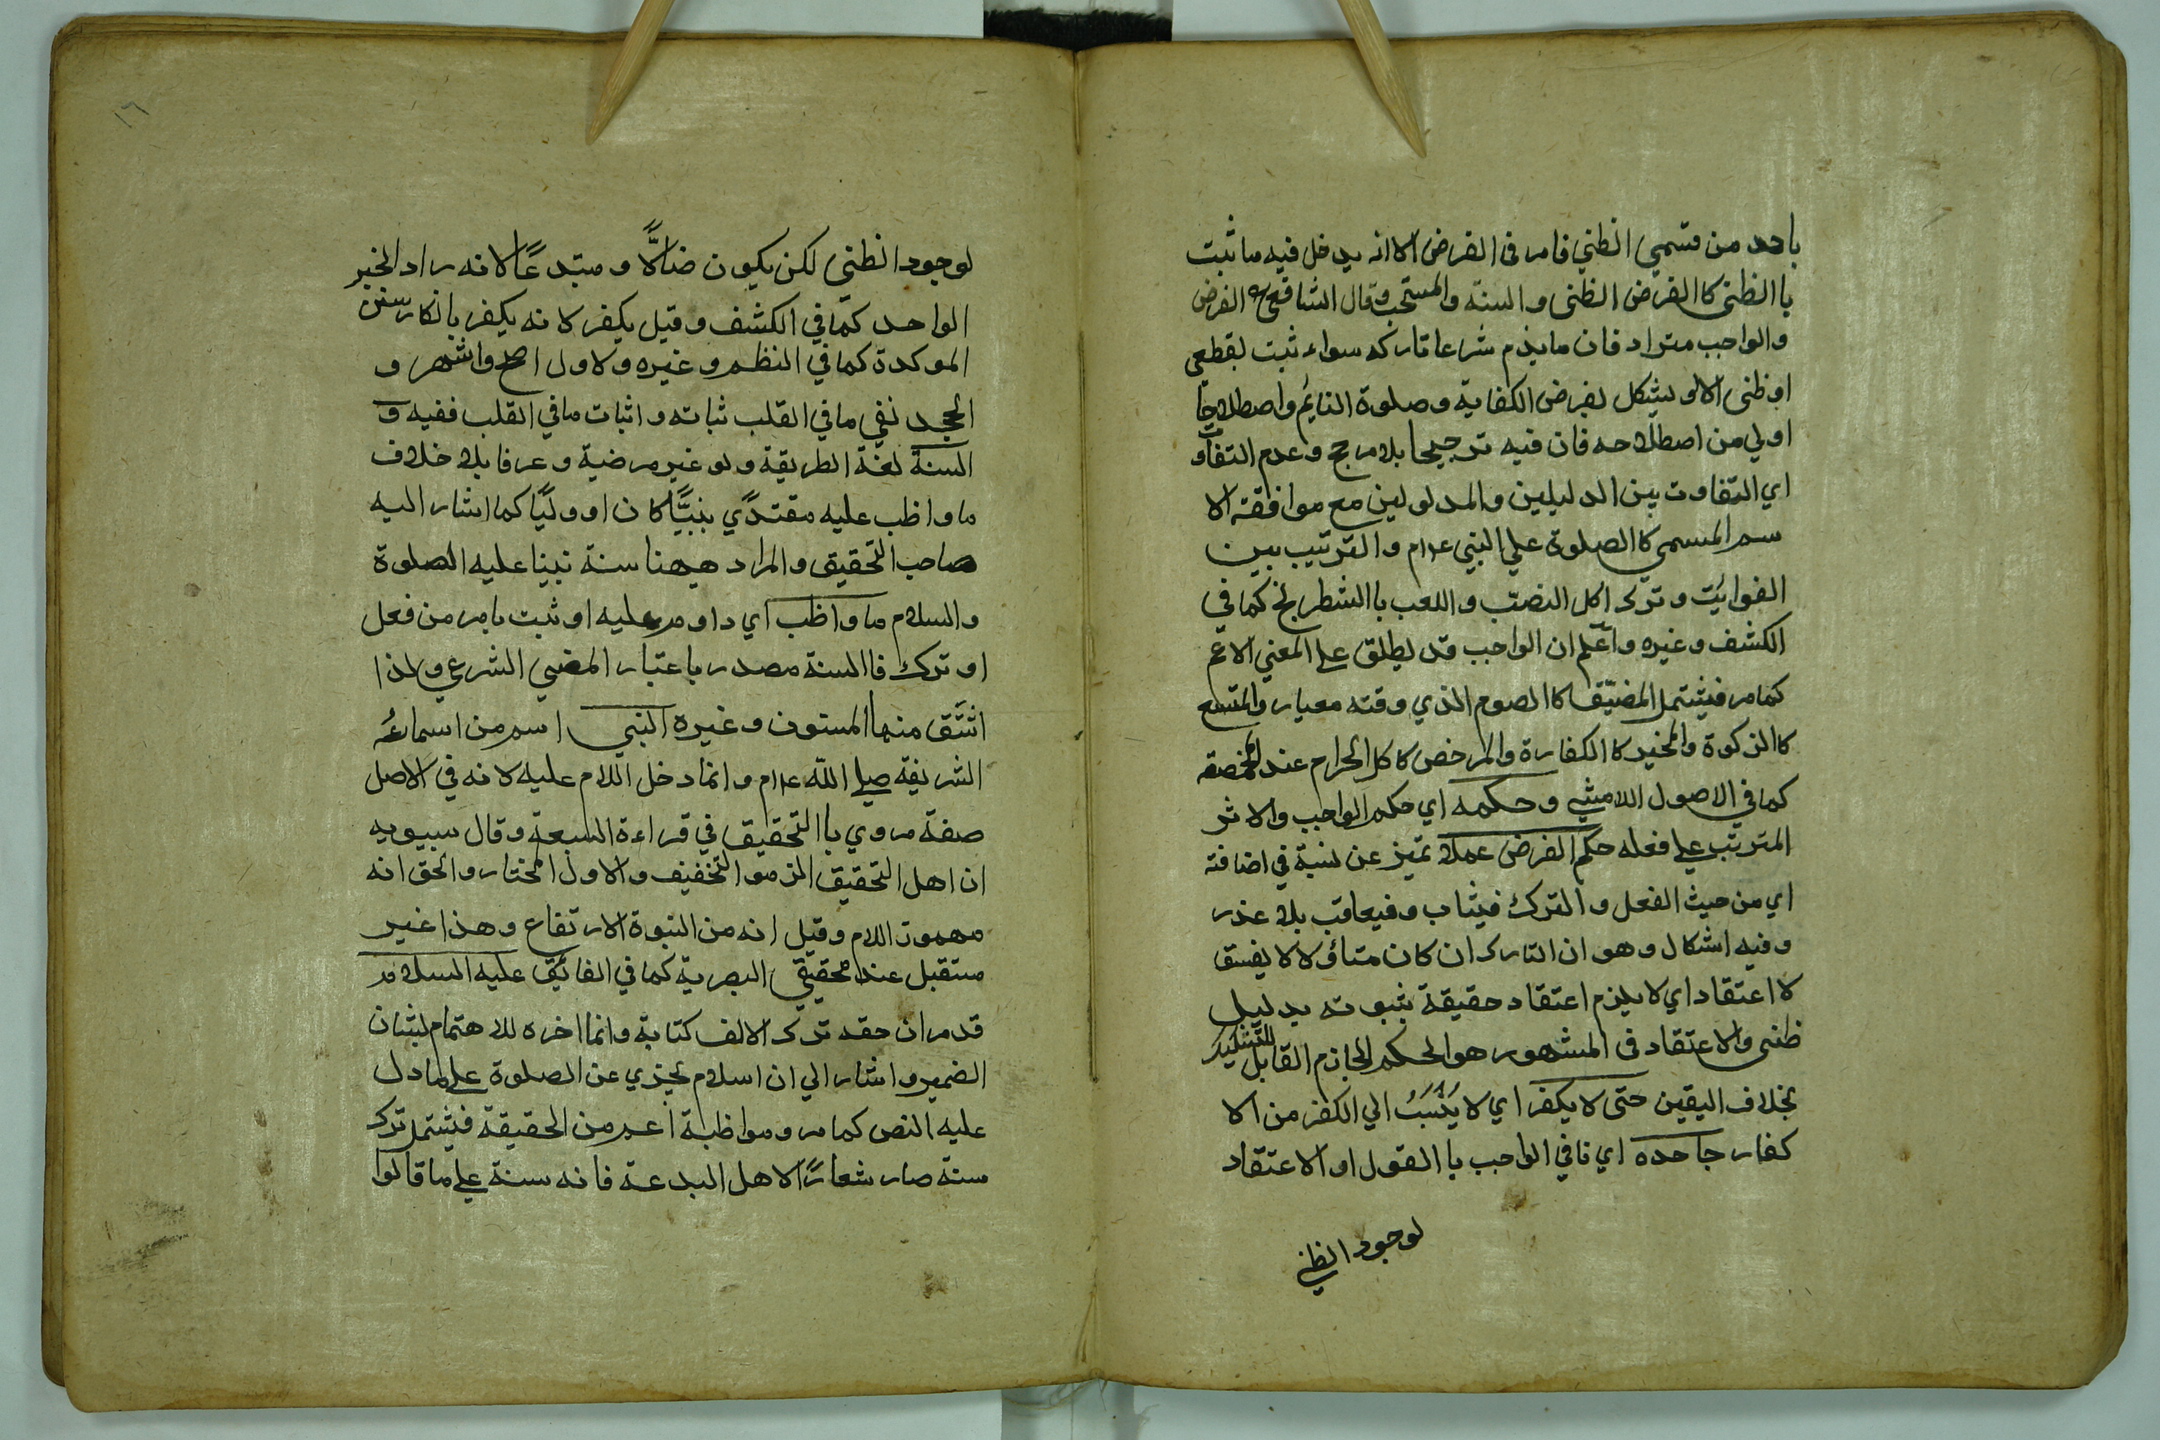 باحد من قسمي الظني فامر في الفرض الا انه يدخل فيه ما ثبت
با الظنى كا الفرض الظنى و السنة والمستحب وقال الشافعي الفرض
والواجب متراد فان ما يذم شرعا تاركه سواء ثبت بقطعي
او ظنى الاولى يشكل بفرض الكفاية و صلوة النايم واصطلاحنا
اولي من اصطلاحه فان فيه ترجيحا بلا مرجح وعدم التفاوت
اي التفاوت بين الدليلين والمدلولين مع موافقته الا
سم المسمي كا الصلوة علي النبي عم و الترتيب بين
الفوائت و ترك اكل الضب و اللعب با الشطرنج كما في
الكشف و غيره و اعلم ان الواجب قد يطلق علي المعني الاعم
كما مر فيشتمل المضيّق كا الصوم الذي وقته معيار والمتسع
كا الزكوة والمخير كا الكفارة والمرخص كا كل الحرام عند المخمصة
كما في الاصول اللامشي و حكمه اي حكم الواجب والا ثر
المترتب علي فعله حكم الفرض عملا تميز عن نسبة في اضافته
اي من حيث الفعل و الترك فيثاب و فيعاقب بلا عذر
و فيه اشكال و هو ان التارك ان كان متأولا لا يفسق
لا اعتقاد اي لا يلزم اعتقاد حقيقة بثبوته بدليل
ظنى والا عتقاد فى المشهور هو الحكم الجازم القابل للتشكيك
بخلاف اليقين حتى لا يكفر اي لا يُنْسَبُ الي الكفر من الا
كفار جاحده اي نافي الواجب با القول او الاعتقاد
لوجود الظني
١٦
لوجود الظنى لكن يكون ضالًّا و مبتدعًا لانه راد الخبر
الواحد كما في الكشف و قيل يكفر لانه يكفر بانكار سنن
الموكدة كما في النظم و غيره و لاول اصح واشهر و
الجحد نفي ما في القلب ثباته و اثبات ما في القلب نفيه و
السنة لغة الطريقة ولو غير مرضية و عرفا بلا خلاف
ما واظب عليه مقتدًي نبيًّا كان او وليًّا كما اشار اليه
صاحب التحقيق والمراد هيهنا سنة نبينا عليه الصلوة
والسلام ما واظب اي داوم عليه او ثبت بامر من فعل
او ترك فا السنة مصدر باعتبار المضي الشرعي ولذا
اشتق منها المسنون و غيره النبي اسم من اسمائه
الشريفة صلي اللّه عم و انما دخل اللام عليه لانه في الاصل
صفة مروي با التحقيق في قراءة السبعة و قال سيبويه
ان اهل التحقيق الزموا التخفيف والاول المختار والحق انه
مهموز اللام و قيل انه من النبوة الارتفاع و هذا غير
مستقبل عند محققي البصرية كما في الفائق عليه السلام
قد مر ان حقه ترك الالف كتابة وانما اخره للاهتمام بشان
الضمير و اشار الي ان اسلام يجزي عن الصلوة علي ما دل
عليه النص كما مر و مواظبة اعم من الحقيقة فيشتمل ترك
سنة صار شعارًا لاهل البدعة فانه سنة علي ما قالوا